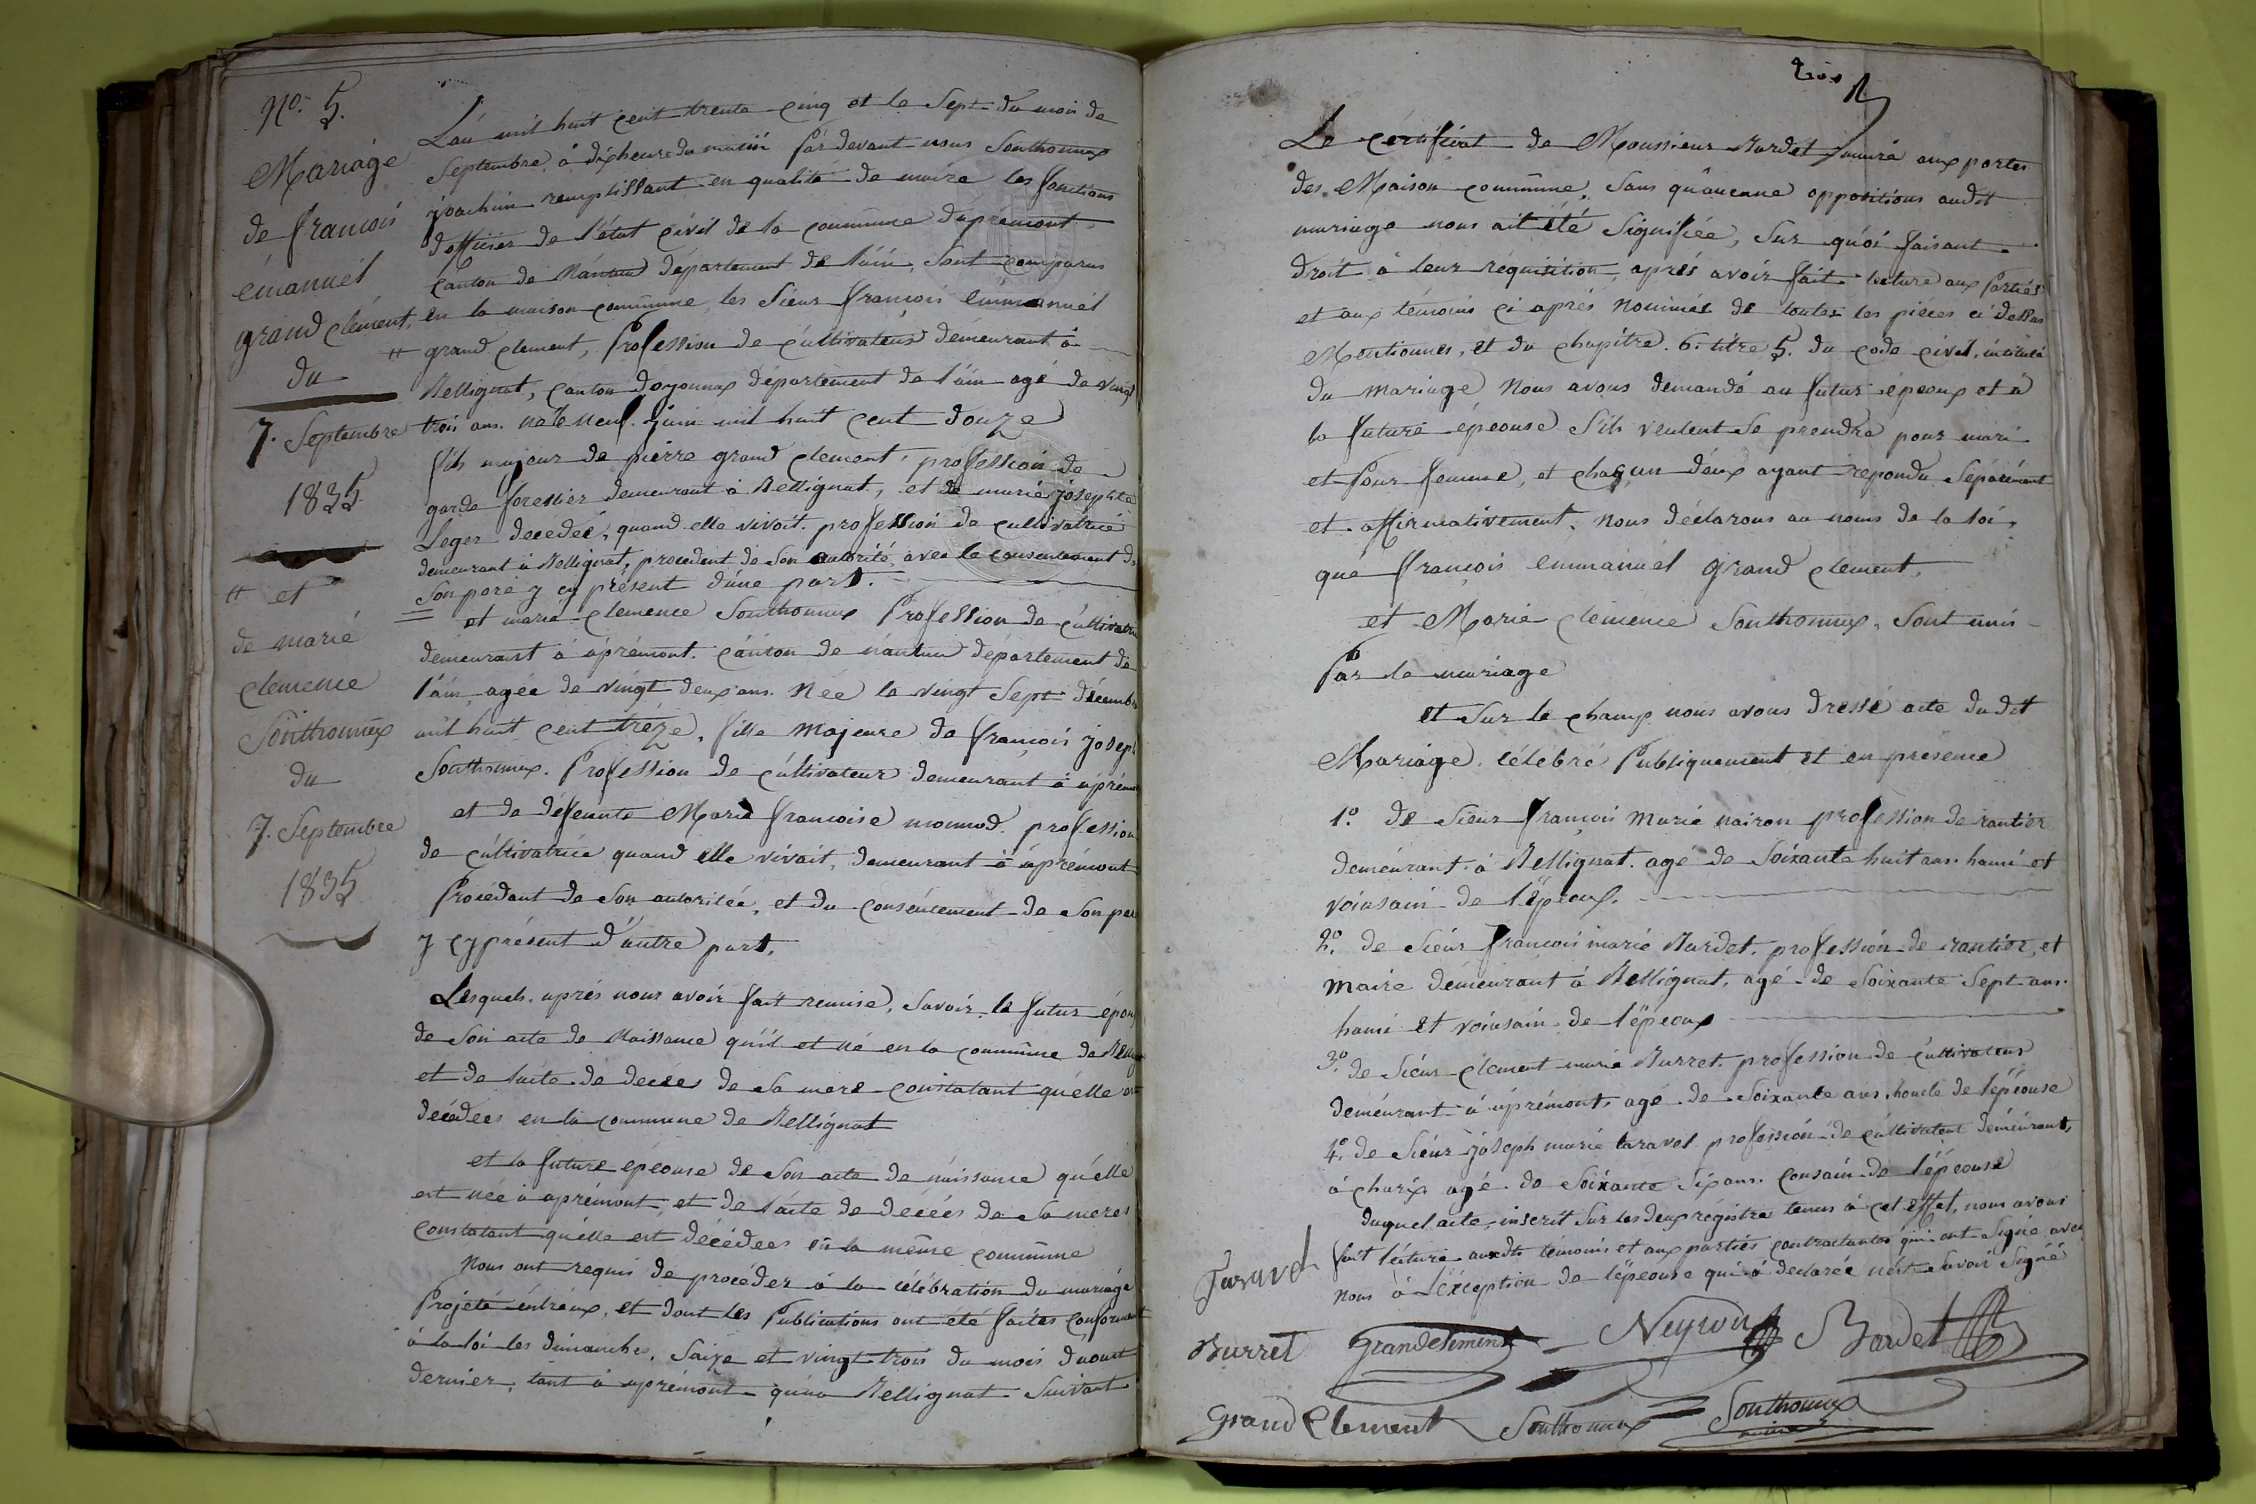 No. 5.
Mariage
de françois
émanuél
grand clément,
du
7. Septembre
1835
" et
de marié
clemence
Sonthonnax
du
7. Septembre
1835
L'an mil huit cent trente cinq et le Sept du mois de
Septembre, à dix heure du matin par devant nous Sonthonnax
joachim remplissant en qualité de maire les fonctions
d'officier de l'état civil de la commune d'aprémont,
Canton de Nantua département de l'ain, Sont comparus
en la maison commune, les Sieur françois emmanuél
" grand clement, profession de cultivateur demeurant à
Bellignat, canton d'oyonnax département de l'ain agé de vingt
trois ans. né le neuf. juin mil huit cent douze
fils majeur de pierre grand clement, profession de
garde forestier demeurant à Bellignat, et de marie josephte
Leger decedeé, quand elle vivoit. profession de cultivatrice
demeurant à Bellignat, procedent de Son autorité avec le consentement de
Son pore y cy present d'une part.
et marie clemence Sonthonnax profession de cultivatri
demeurant à aprémont. canton de nantua département de
l'ain, agée de vingt deux ans. Née le vingt Sept décembre
mil huit cent trèze, fille majeure de françois joseph
Sonthonnax. profession de cultivateur demeurant à aprémon
et de défeunte Marie françoise monnod. profession
de cultivatrice quand elle vivait, demeurant à aprémont
Procédant de Son autoritée, et du consentement de Son per
y cy présent d'autre part.
Lesquels. aprés nous avoir fait remise, Savoir, le futur épou
de Son acte de Naissance qu'il et né en la commune de Bellig
et de l'acte de decées de Sa mere constatant qu'elle est
decédees en la commune de Bellignat
et la future epeouse de Son acte de naissance qu'elle
est née à aprémont, et de l'acte de decées de Sa mere
constatant qu'elle est décédees en la même commune
Nous ont requis de procéder à la célébration du mariage
Projeté entréux, et dont les Publications ont été faites conformement
à la loi les dimanches, Saize et vingt trois du mois d'aout
dernier, tant à aprémont qu'au Bellignat Suivant
trois
Le certificat de Monssieur Bardet maire aux portes
des Maison commune, Sans qu'aucune oppositions audit
mariage nous ait été Signifiée, Sur quoi faisant
droit à leur réquisition, aprés avoir fait lecture aux parties
et aux témoins ci aprés nommés de toutes les pièces ci dessus
Mentionnes, et du chapitre. 6. titre 5. du code civil, intitulé
du mariage Nous avons demandé au futur épeoux et à
la future épeouse S'ils veulent Se prendre pour mari
et pour femme, et chaqun deux ayant repondu Séparément
et affirmativement, nous déclarons au noms de la loi,
que françois emmanuél grand clement,
et Marie clemence Sonthonnax, Sont unis
Par le mariage
et Sur le champ nous avons dressé acte du dit
Mariage, célébré Publiquement et en présence
1.º de Sieur françois marie nairon profession de rantier
demeurant à Bellignat. agé de Soixante huit ans. hami et
voinsain de l'épeoux.
2.º de Sieur françois marie Bardet. profession de rantier, et
maire demeurant à Bellignat, agé de Soixante Sept ans.
hami et voinsain de l'épeoux
3.º de Sieur clement marie Burret. profession de cultivateur
demeurant à aprémont, agé de Soixante ans, honcle de l'épeouse
4.º de Sieur joseph marie taravel profession de cultivateur demeurant,
à charix agé de Soixante Six ans. consain de l'épeouse
duquel acte, inscrit Sur les deux régistre tenus à cet effet, nous avons
fait lécture auxdts témoins et aux parties contractantes qui ont Signé avec
nous à l'éxception de l'épeouse qui a declarée ne Savoir Signé
Taravel
Burret Grandclement Neyron Bardet
Grand Clement Sonthonnax Sonthonnax
maire